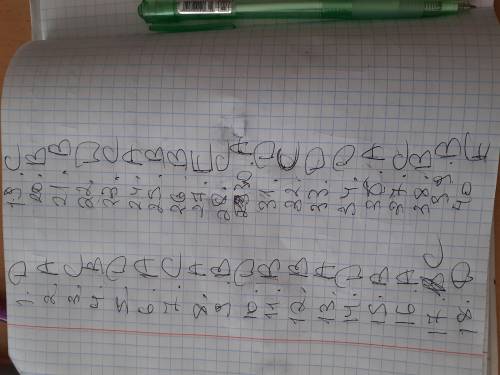 1. D
2. A
3. C
4. B
5. D
6. A
7. C
8. A
9. B
10. D
11. B
12. B
13. A
14. D
15. A
16. A
17. C
18. D
19. C
20. B
21. B
22. D
23. C
24. A
25. B
26 B
27. E
28. C
30 A
31. D
32. C
33. D
34. D
36. A
37. C
38. B
39. B
40 E